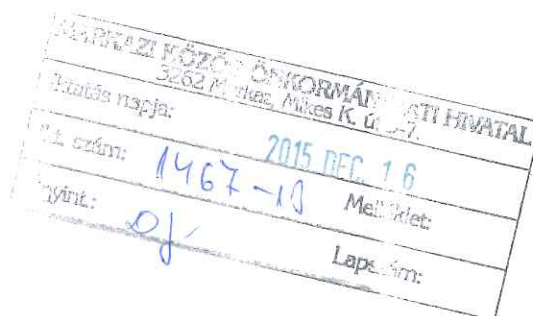 MARKAZI KÖZÖS ÖNKORMÁNYZATI HIVATAL
3262 Markaz, Mikes K. út
Iktatás napja: 2015 DEC. 16
Ikt. szám: 1467 - Melléklet:
Lapszám: